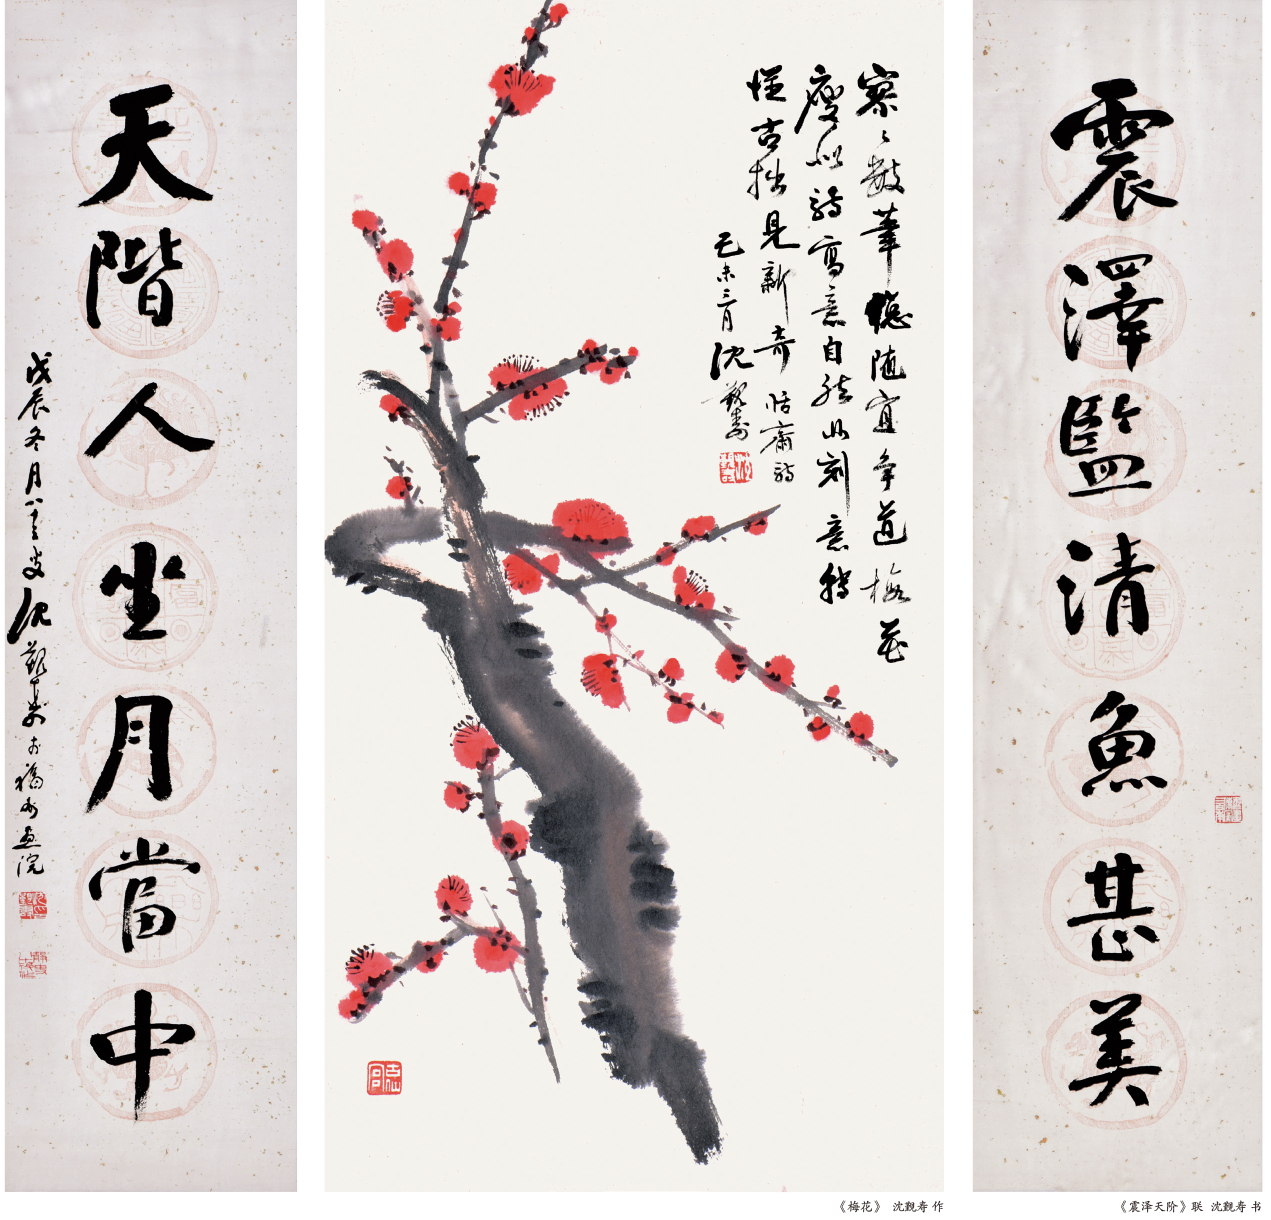 震澤監清魚甚美
寥〻數筆總隨宜爭道梅花
瘦似詩寫意自然非刻意轉
從古拙見新奇 恬齋詩
己未三月沈覲壽
天階人坐月當中
戊辰冬月八十二叟沈覲壽於福州畫院
《梅花》 沈觐寿 作
《震泽天阶》联 沈觐寿 书